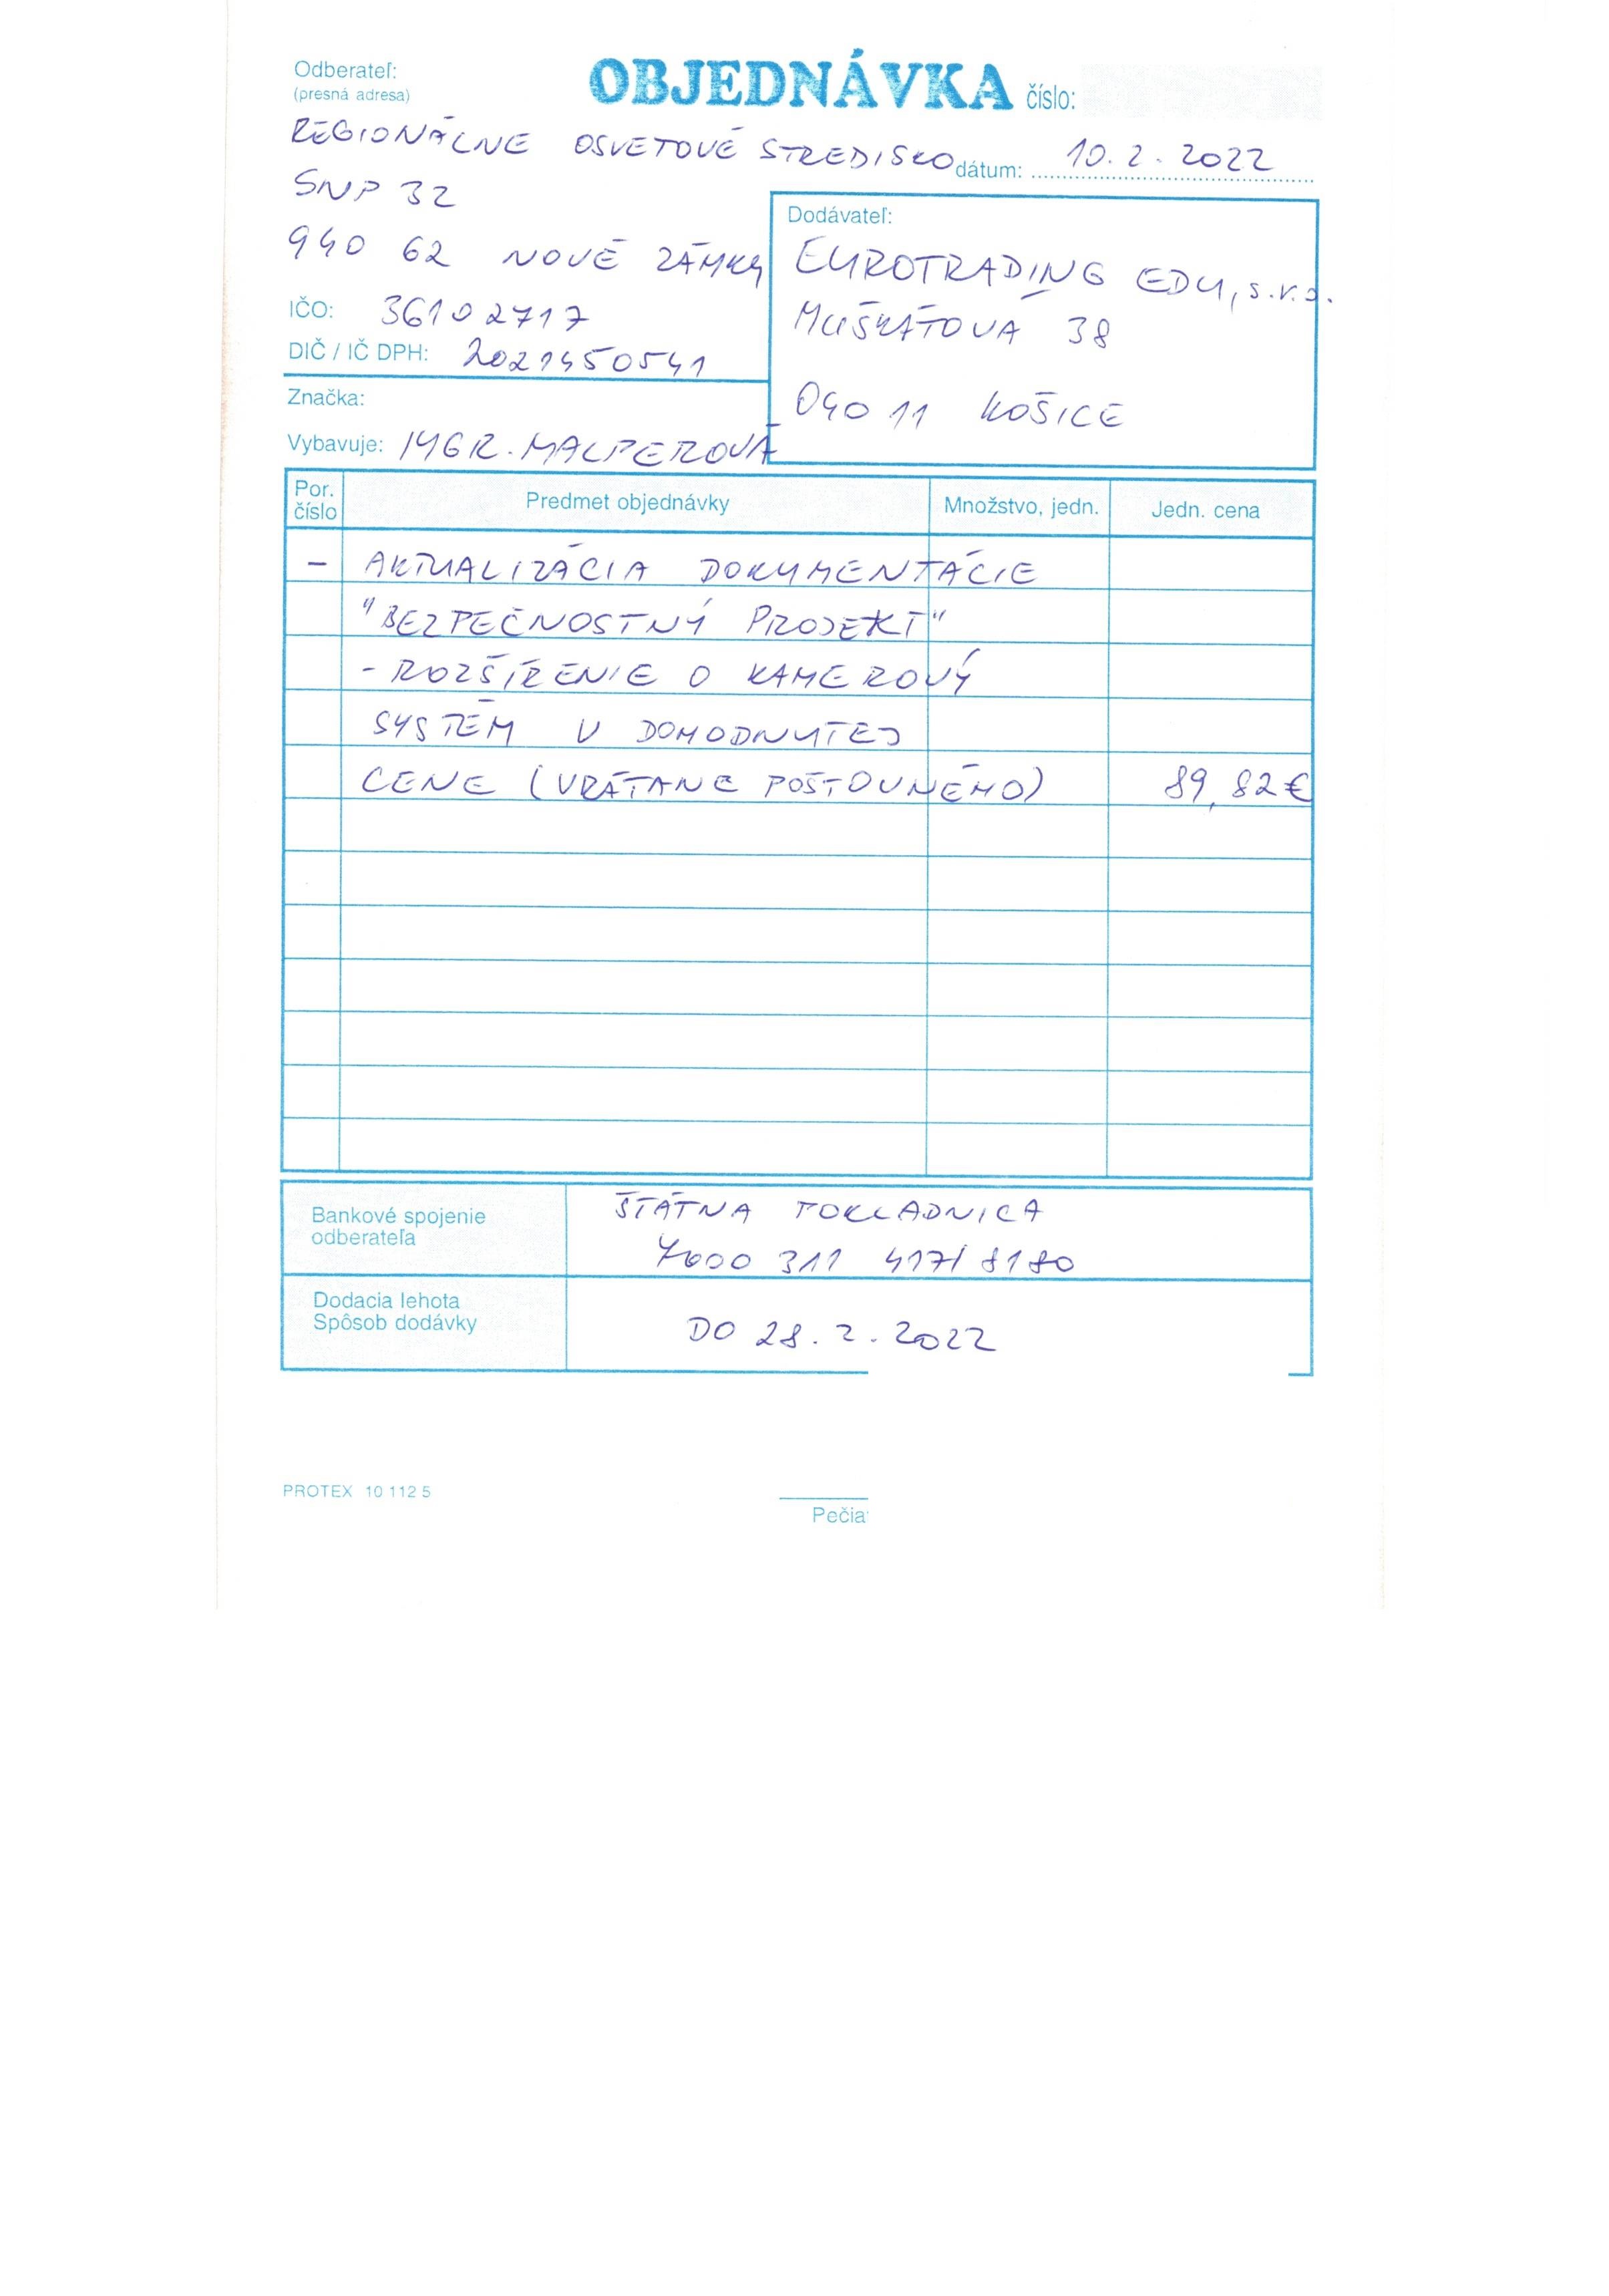 Odberateľ:
(presná adresa)
OBJEDNÁVKA číslo:
REGIONÁLNE OSVETOVÉ STREDISKO
dátum: 10. 2. 2022
SNP 32
940 62 NOVÉ ZÁMKY
IČO: 36102717
DIČ / IČ DPH: 2021450541
Značka:
Vybavuje: MGR. MALPEROVÁ
Dodávateľ:
EUROTRADING EDU, s.r.o.
MUŠKÁTOVÁ 38
040 11 KOŠICE
Por. číslo
Predmet objednávky
Množstvo, jedn.
Jedn. cena
– AKTUALIZÁCIA DOKUMENTÁCIE
"BEZPEČNOSTNÝ PROJEKT"
- ROZŠÍRENIE O KAMEROVÝ
SYSTÉM V DOHODNUTEJ
CENE (VRÁTANE POŠTOVNÉHO) 89,82€
Bankové spojenie
odberateľa
ŠTÁTNA POKLADNICA
7000 311 417/8180
Dodacia lehota
Spôsob dodávky
DO 28. 2. 2022
PROTEX 10 112 5
Pečia